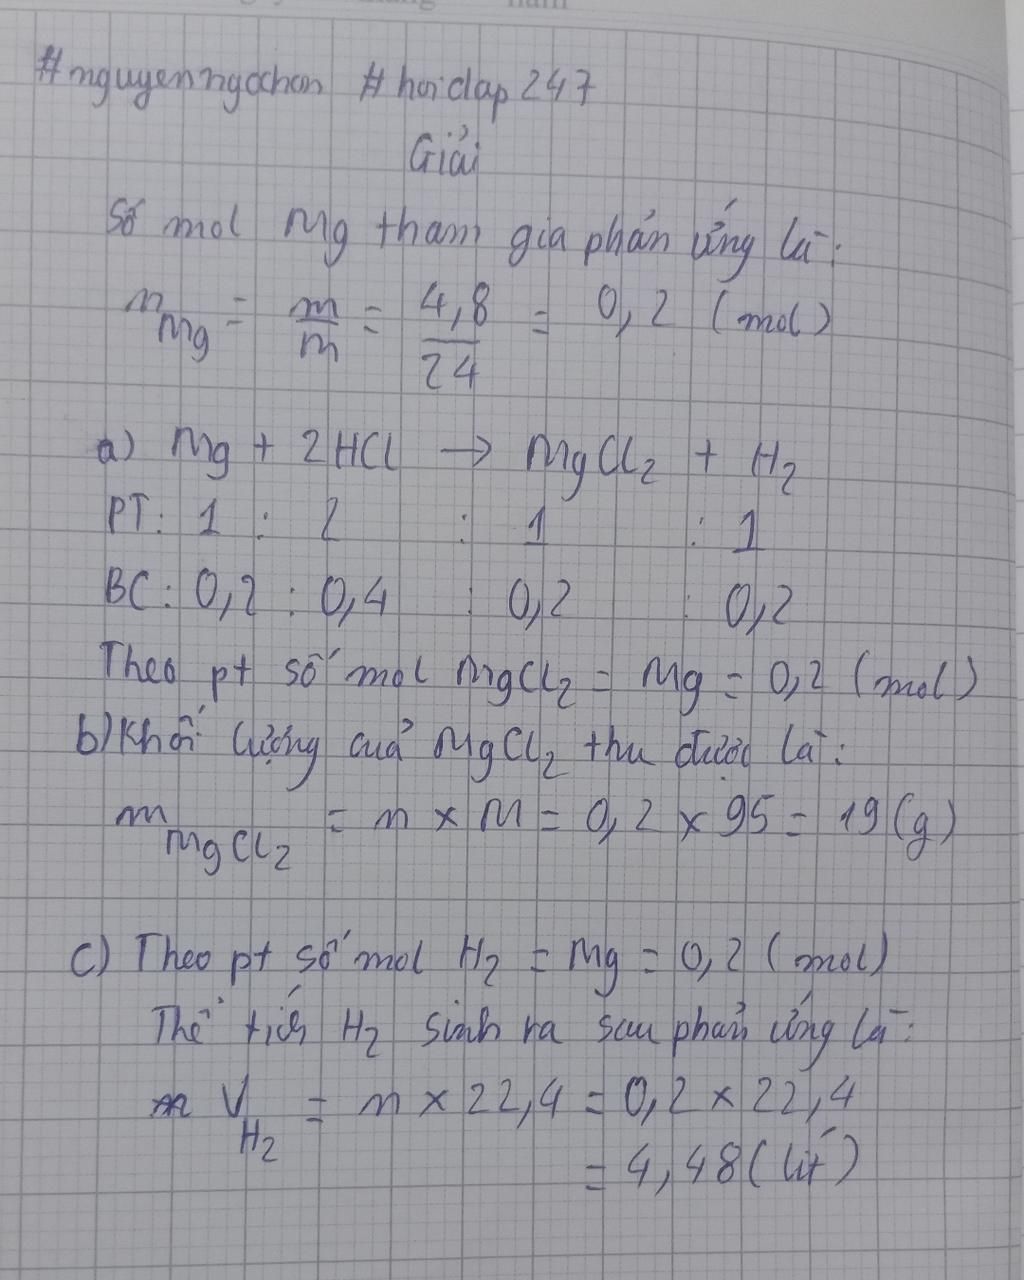 #nguyenngochon #hoidap247
Giải
Số mol Mg tham gia phản ứng là:
n Mg = m/m = 4,8/24 = 0,2 (mol)
a) Mg + 2HCl → MgCl2 + H2
PT: 1 : 2 : 1 : 1
BC: 0,2 : 0,4 : 0,2 : 0,2
Theo pt số mol MgCl2 = Mg = 0,2 (mol)
b) Khối lượng cuả MgCl2 thu được là:
m MgCl2 = n × M = 0,2 × 95 = 19 (g)
c) Theo pt số mol H2 = Mg = 0,2 (mol)
Thể tích H2 sinh ra sau phản ứng là:
V H2 = n × 22,4 = 0,2 × 22,4
= 4,48 (lít)